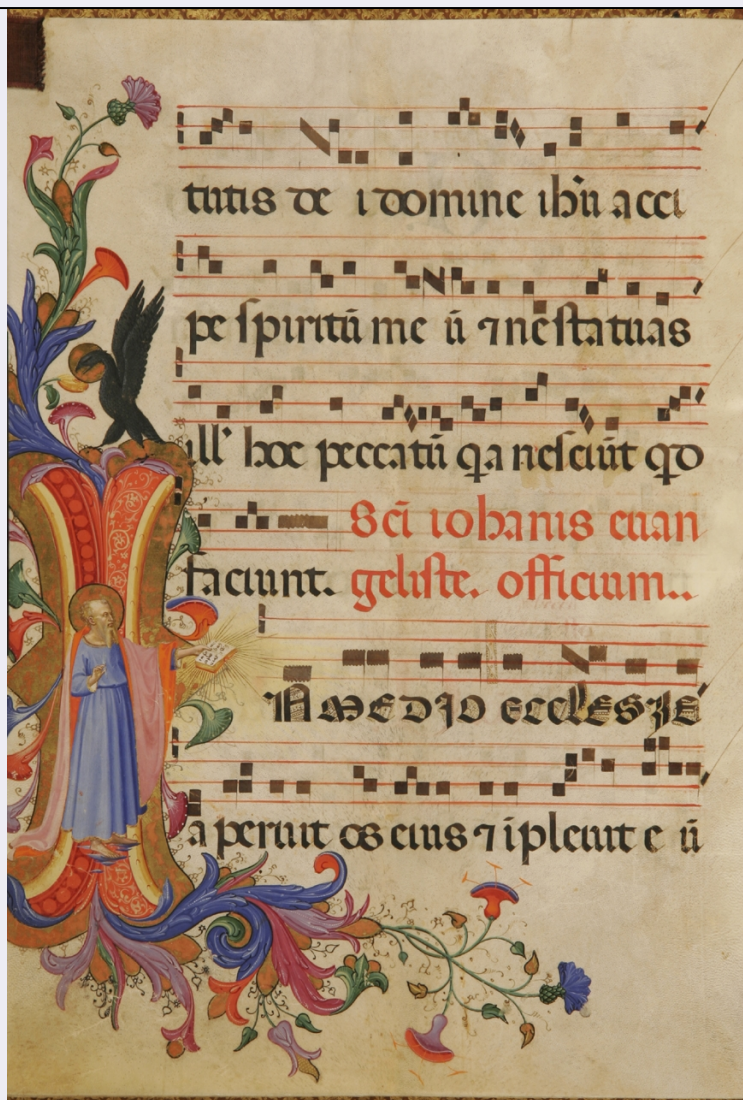 tutis de i domine ih̅u acci
pe spiritū me ū ⁊ ne statuas
ill' hoc peccatū q̇a nesciūt qd
faciunt. Sc̄i iohanis euan
geliste. officium..
IN MEDIO ECCLESIE
aperuit os eius ⁊ īpleuit e ū